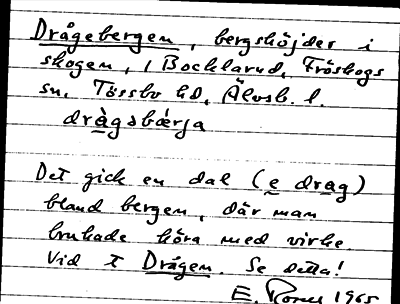 Drågebergen, bergshöjder i
skogen, i Bocklarud, Fröskogs
sn, Tössbo hd, Älvsb. l.
dràgsbærja
Det gick en dal (e drag)
bland bergen, där man
brukade köra med virke.
Vid t Drågen. Se detta!
E. 1965